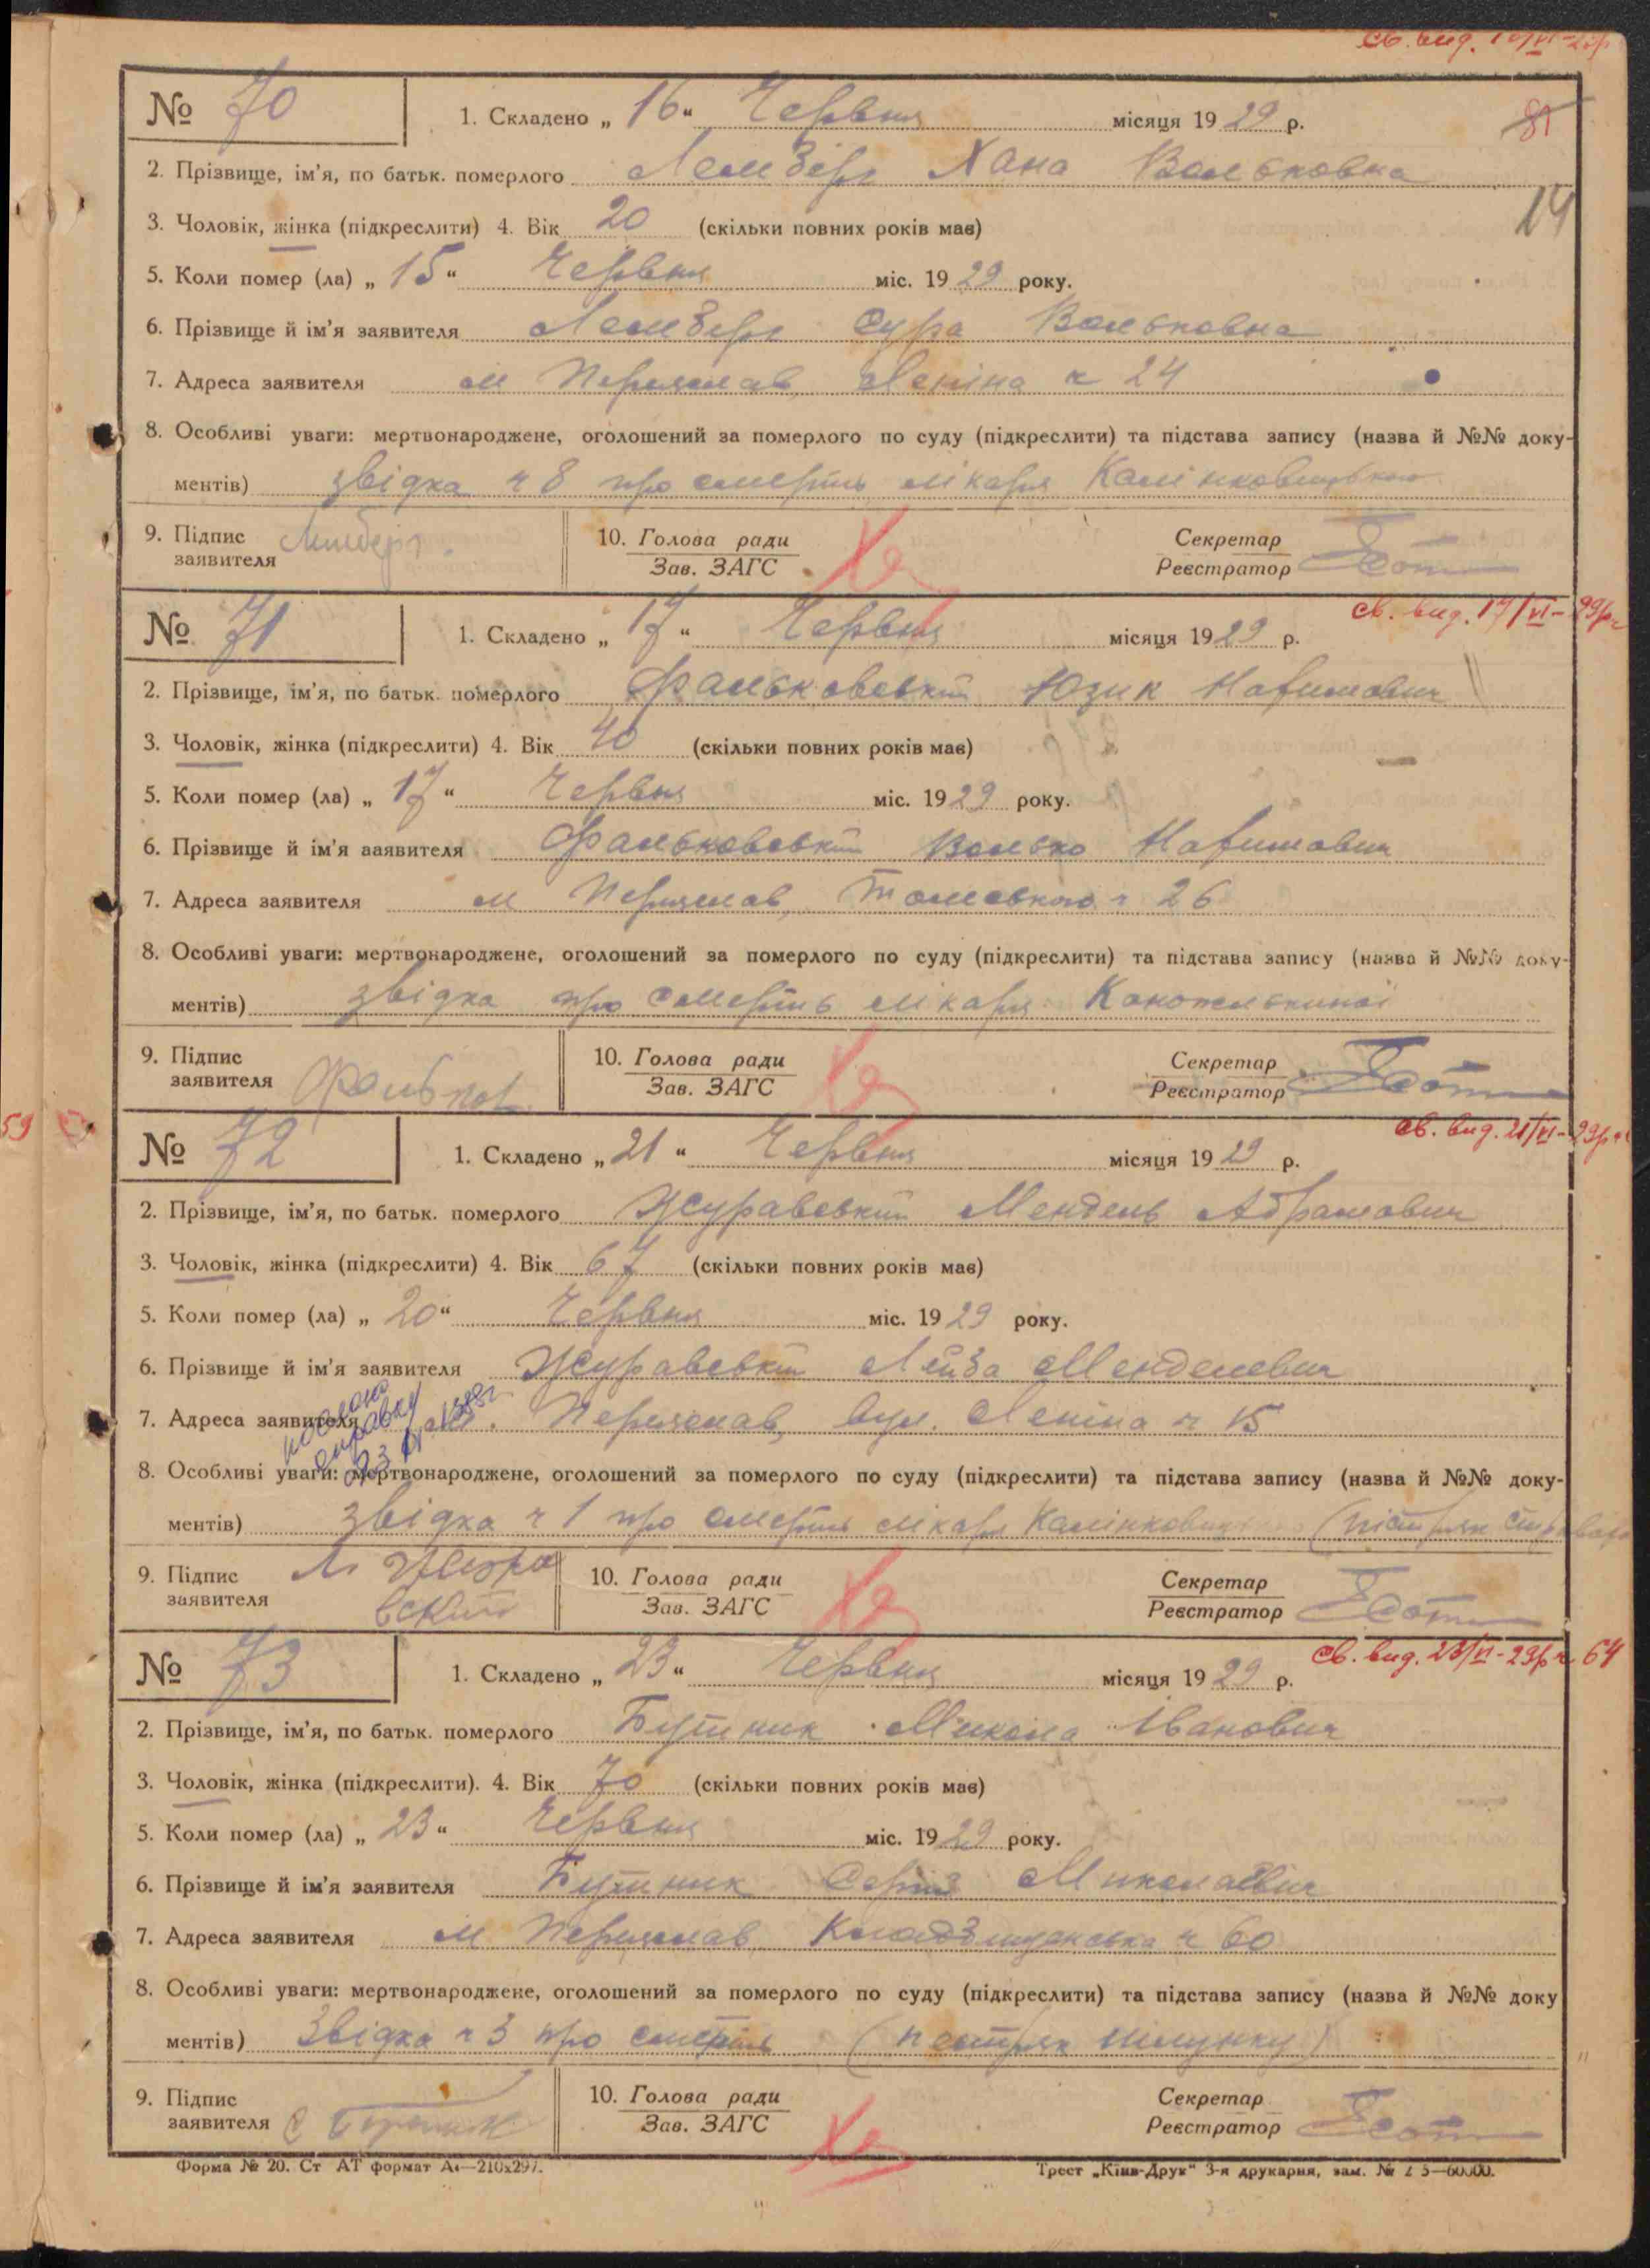 Св. вид. 16/VI-29р
№ 70
1. Складено „16“ Червня місяця 1929 р.
81
2. Прізвище, ім’я, по батьк. померлого Лемберг Хана Вольковна
14
3. Чоловік, жінка (підкреслити) 4. Вік 20 (скільки повних років має)
5. Коли помер (ла) „15“ Червня міс. 1929 року.
6. Прізвище й ім’я заявителя Лемберг Сура Вольковна
7. Адреса заявителя м Переяслав, Леніна ч 24
8. Особливі уваги: мертвонароджене, оголошений за померлого по суду (підкреслити) та підстава запису (назва й №№ доку-
ментів) звідка ч 8 про смерть лікаря
9. Підпис заявителя Лемберг.
10. Голова ради
Зав. ЗАГС
Секретар
Реєстратор
Св. вид. 17/VI-29р
№ 71
1. Складено „17“ Червня місяця 1929 р.
2. Прізвище, ім’я, по батьк. померлого Фальковський Юзик Нафимович
3. Чоловік, жінка (підкреслити) 4. Вік 40 (скільки повних років має)
5. Коли помер (ла) „17“ Червня міс. 1929 року.
6. Прізвище й ім’я заявителя Фальковський Волько Нафимович
7. Адреса заявителя м Переяслав, ч 26
8. Особливі уваги: мертвонароджене, оголошений за померлого по суду (підкреслити) та підстава запису (назва й №№ доку-
ментів) звідка про смерть лікаря
9. Підпис заявителя Фальков
10. Голова ради
Зав. ЗАГС
Секретар
Реєстратор
59
Св. вид. 21/VI-29р
№ 72
1. Складено „21“ Червня місяця 1929 р.
2. Прізвище, ім’я, по батьк. померлого Журавський Мендель Абрамович
3. Чоловік, жінка (підкреслити) 4. Вік 67 (скільки повних років має)
5. Коли помер (ла) „20“ Червня міс. 1929 року.
6. Прізвище й ім’я заявителя Журавський Лейба Менделевич
7. Адреса заявителя м. Переяслав, вул. Леніна ч 15
8. Особливі уваги: мертвонароджене, оголошений за померлого по суду (підкреслити) та підстава запису (назва й №№ доку-
ментів) звідка ч 1 про смерть лікаря
9. Підпис заявителя Л Журавский
10. Голова ради
Зав. ЗАГС
Секретар
Реєстратор
Св. вид. 23/VI-29р ч 64
№ 73
1. Складено „23“ Червня місяця 1929 р.
2. Прізвище, ім’я, по батьк. померлого Бутник Микола Іванович
3. Чоловік, жінка (підкреслити). 4. Вік 70 (скільки повних років має)
5. Коли помер (ла) „23“ Червня міс. 1929 року.
6. Прізвище й ім’я заявителя Бутник Сергій Миколаєвич
7. Адреса заявителя м Переяслав ч 60
8. Особливі уваги: мертвонароджене, оголошений за померлого по суду (підкреслити) та підстава запису (назва й №№ доку
ментів) Звідка ч 3 про смерть (пістряк шлунку)
9. Підпис заявителя С Бутник
10. Голова ради
Зав. ЗАГС
Секретар
Реєстратор
Форма № 20. Ст АТ формат А4—210х297.
Трест „Київ-Друк“ 3-я друкарня, зам. №